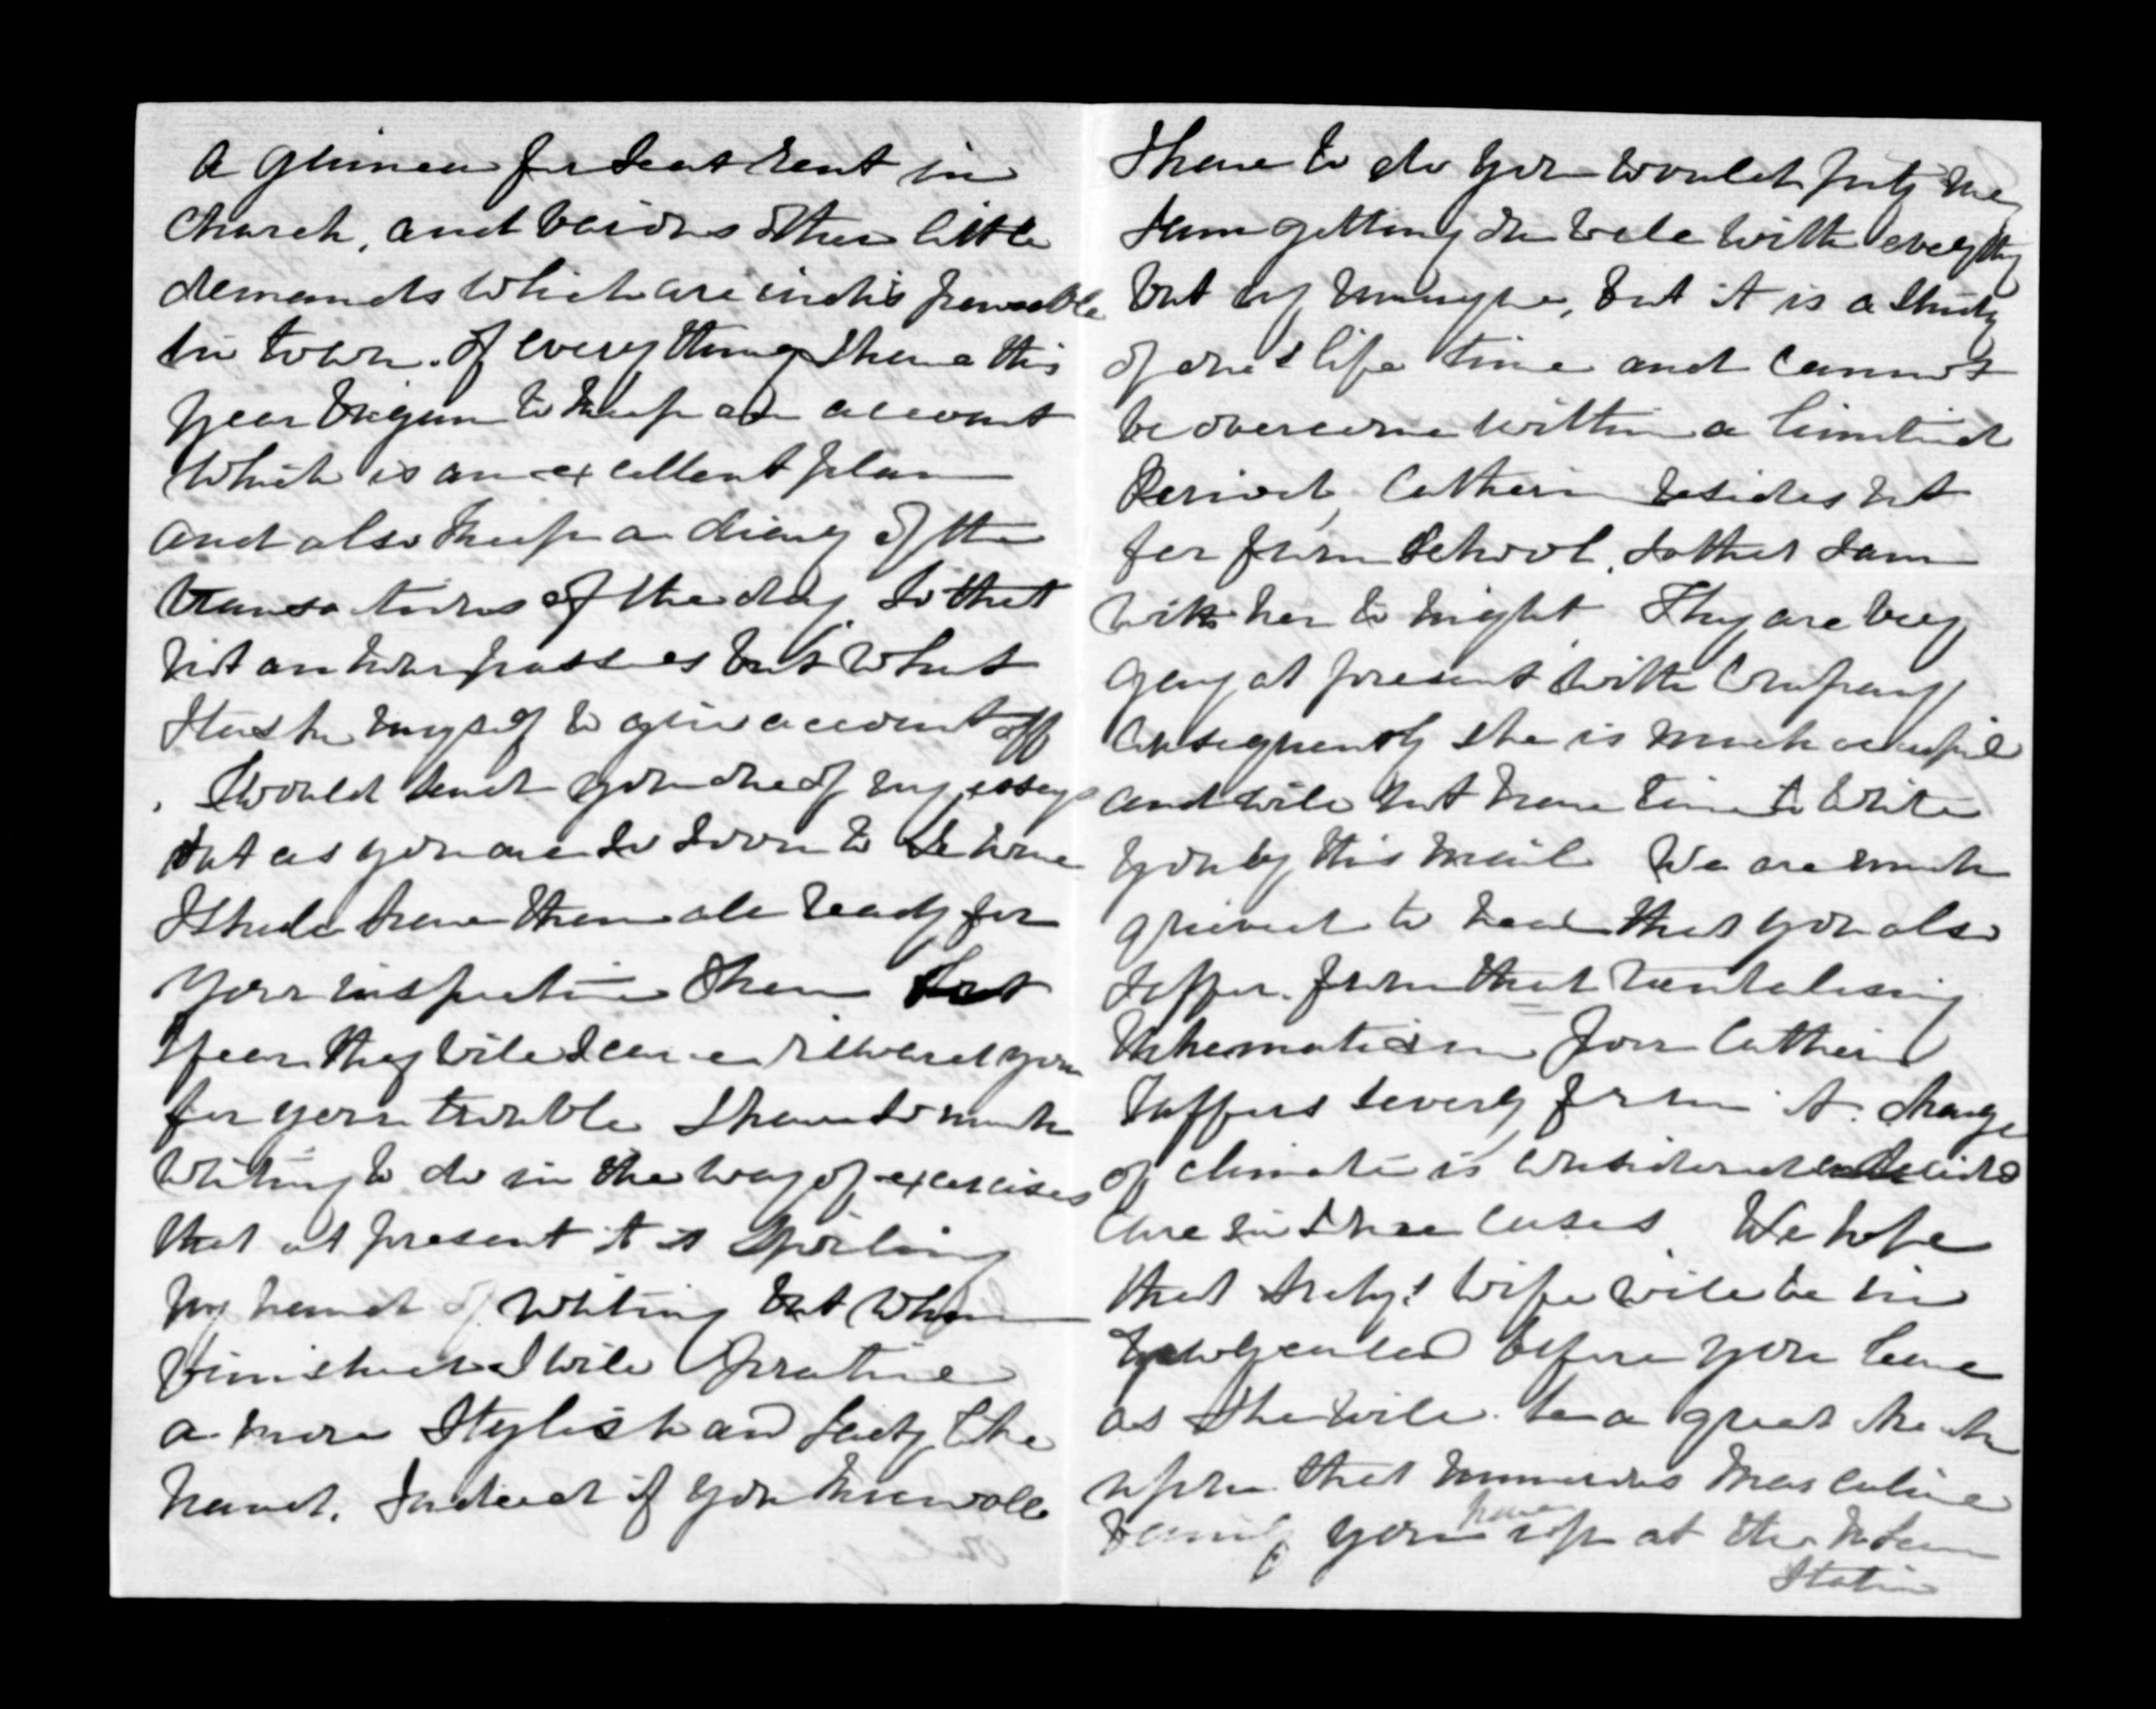 a guinea for seat rent in
church, and various other little
demands which are indispensable
in town. of every thing I have this
year begun to keep an account
which is an excellent plan
and also keep a diary of the
transactions of the day so that
not an hour passes but what
I task myself to give account off
. I would send you one of my essays
but as you are so soon to be home
I shall have them all ready for
your inspection then but
I fear they will scarce reward you
for your trouble I have so much
writing to do in the way of exercises
that at present it is spoiling
my hand of writing but when
finished I will practice
a more stylish and lady like
hand. Indeed if you knew all
I have to do you would pity me
I am getting on well with everything
but my, but it is a study
of one's life time and cannot
be overcome within a limited
Period, Catherin resides not
far from School, so that I am
with her to night They are very
gay at present with Company
Consequently she is much occupied
and will not have time to write
you by this mail We are much
grieved to hear that you also
suffer from that tantalising
Rheumatism Poor Catherin
suffers severly from it. change
of climate is considered a decided
cure in some cases. We hope
that wife will be in
before you leave
as she will be a great check
upon that numerous masculine
Family you have up at the
Station